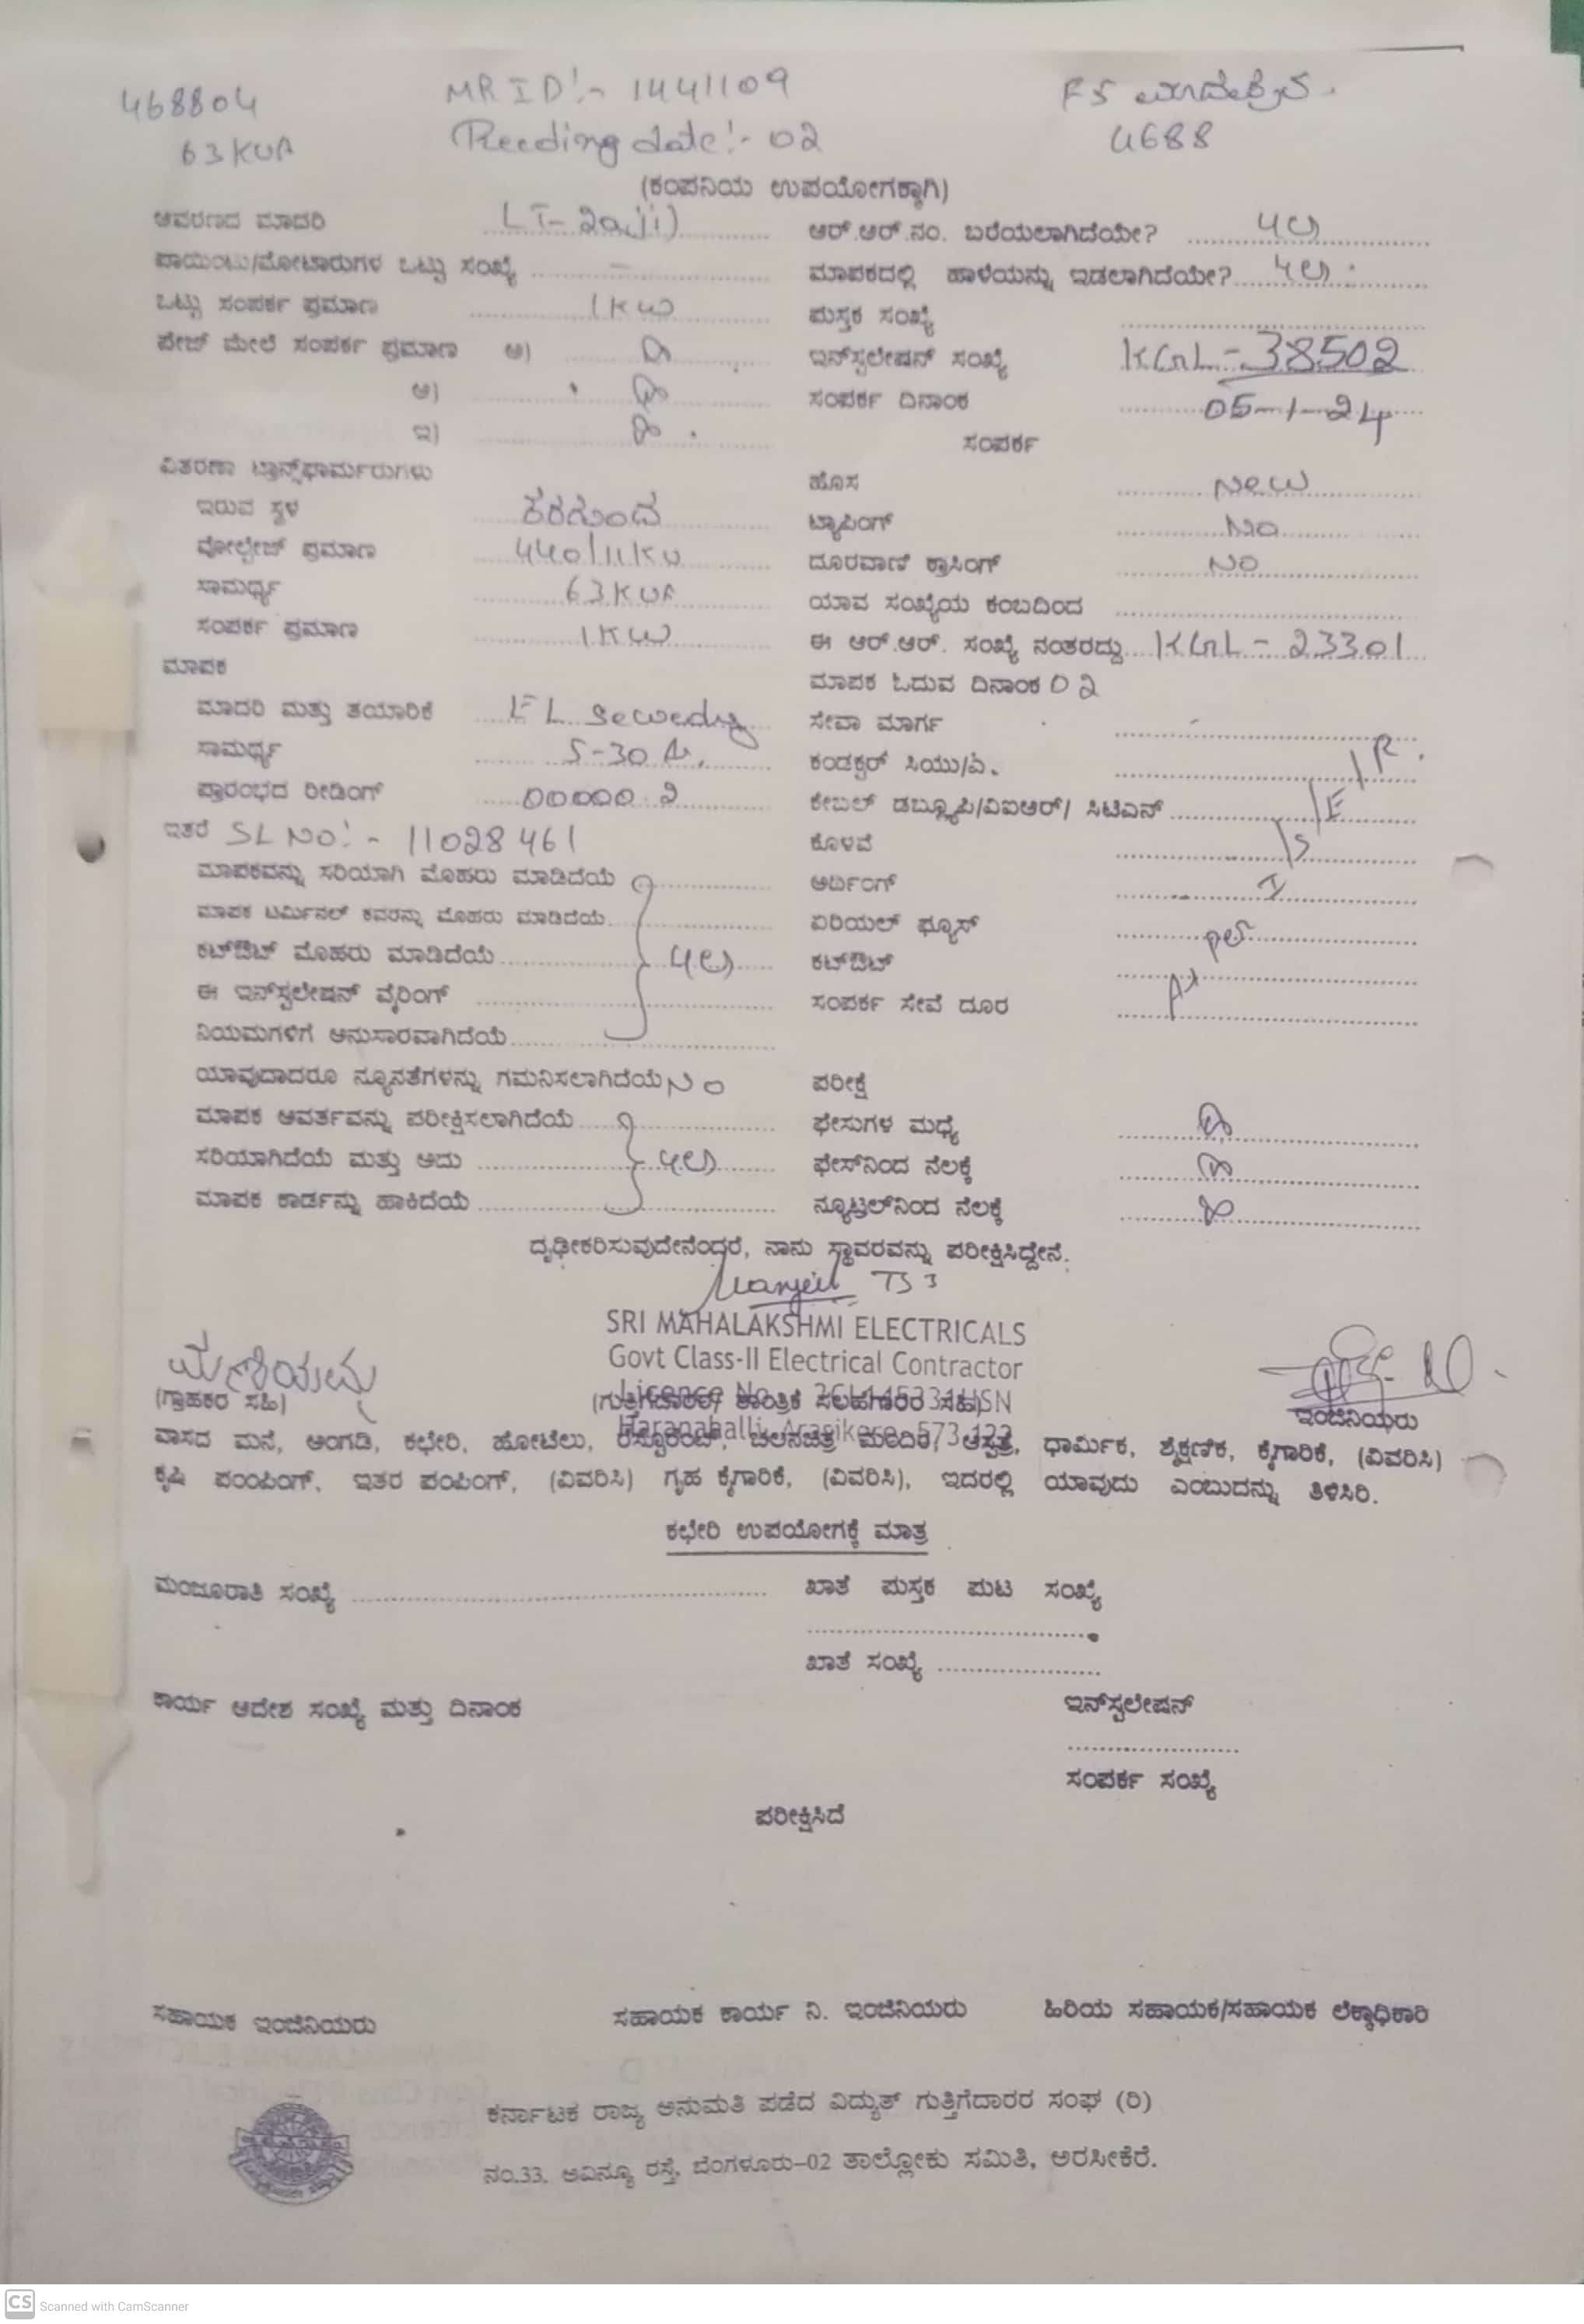 468804 MR ID:- 1441109 FS
63 KVA Reeding date:- 02 4688
(ಕಂಪನಿಯ ಉಪಯೋಗಕ್ಕಾಗಿ)
ಆವರಣದ ಮಾದರಿ LT-2a(ii) ಆರ್.ಆರ್.ನಂ. ಬರೆಯಲಾಗಿದೆಯೇ?
ಪಾಯಿಂಟು/ಮೋಟಾರುಗಳ ಒಟ್ಟು ಸಂಖ್ಯೆ - ಮಾಪಕದಲ್ಲಿ ಹಾಳೆಯನ್ನು ಇಡಲಾಗಿದೆಯೇ?
ಒಟ್ಟು ಸಂಪರ್ಕ ಪ್ರಮಾಣ 1KW ಪುಸ್ತಕ ಸಂಖ್ಯೆ
ಪೇಜ್ ಮೇಲೆ ಸಂಪರ್ಕ ಪ್ರಮಾಣ ಅ) ಇನ್‌ಸ್ಟಲೇಷನ್ ಸಂಖ್ಯೆ KGL-38502
ಆ) ಸಂಪರ್ಕ ದಿನಾಂಕ 05-1-24
ಇ) ಸಂಪರ್ಕ
ವಿತರಣಾ ಟ್ರಾನ್ಸ್‌ಫಾರ್ಮರುಗಳು ಹೊಸ New
ಇರುವ ಸ್ಥಳ ಕರಗುಂದ ಟ್ಯಾಪಿಂಗ್ No
ವೋಲ್ಟೇಜ್ ಪ್ರಮಾಣ 440/11KV ದೂರವಾಣಿ ಕ್ರಾಸಿಂಗ್ NO
ಸಾಮರ್ಥ್ಯ 63KVA ಯಾವ ಸಂಖ್ಯೆಯ ಕಂಬದಿಂದ
ಸಂಪರ್ಕ ಪ್ರಮಾಣ 1KW ಈ ಆರ್.ಆರ್. ಸಂಖ್ಯೆ ನಂತರದ್ದು KGL-23301
ಮಾಪಕ ಮಾಪಕ ಓದುವ ದಿನಾಂಕ 02
ಮಾದರಿ ಮತ್ತು ತಯಾರಿಕೆ EL Sewedy ಸೇವಾ ಮಾರ್ಗ
ಸಾಮರ್ಥ್ಯ 5-30 A. ಕಂಡಕ್ಟರ್ ಸಿಯು/ಎ.
ಪ್ರಾರಂಭದ ರೀಡಿಂಗ್ 00000.2 ಕೇಬಲ್ ಡಬ್ಲ್ಯೂಪಿ/ವಿಐಆರ್/ ಸಿಟಿಎಸ್
ಇತರೆ SL NO:- 11028461 ಕೊಳವೆ
ಮಾಪಕವನ್ನು ಸರಿಯಾಗಿ ಮೊಹರು ಮಾಡಿದೆಯೆ ಅರ್ಥಿಂಗ್
ಮಾಪಕ ಟರ್ಮಿನಲ್ ಕವರನ್ನು ಮೊಹರು ಮಾಡಿದೆಯೆ ಏರಿಯಲ್ ಫ್ಯೂಸ್
ಕಟ್‌ಔಟ್ ಮೊಹರು ಮಾಡಿದೆಯೆ ಕಟ್‌ಔಟ್
ಈ ಇನ್‌ಸ್ಟಲೇಷನ್ ವೈರಿಂಗ್ ಸಂಪರ್ಕ ಸೇವೆ ದೂರ
As per I/S/E/R.
ನಿಯಮಗಳಿಗೆ ಅನುಸಾರವಾಗಿದೆಯೆ
ಯಾವುದಾದರೂ ನ್ಯೂನತೆಗಳನ್ನು ಗಮನಿಸಲಾಗಿದೆಯೆ NO ಪರೀಕ್ಷೆ
ಮಾಪಕ ಆವರ್ತವನ್ನು ಪರೀಕ್ಷಿಸಲಾಗಿದೆಯೆ ಫೇಸುಗಳ ಮಧ್ಯೆ
ಸರಿಯಾಗಿದೆಯೆ ಮತ್ತು ಅದು ಫೇಸ್‌ನಿಂದ ನೆಲಕ್ಕೆ
ಮಾಪಕ ಕಾರ್ಡನ್ನು ಹಾಕಿದೆಯೆ ನ್ಯೂಟ್ರಲ್‌ನಿಂದ ನೆಲಕ್ಕೆ
ದೃಢೀಕರಿಸುವುದೇನೆಂದರೆ, ನಾನು ಸ್ಥಾವರವನ್ನು ಪರೀಕ್ಷಿಸಿದ್ದೇನೆ.
SRI MAHALAKSHMI ELECTRICALS
Govt Class-II Electrical Contractor
(ಗ್ರಾಹಕರ ಸಹಿ) (ಗುತ್ತಿಗೆದಾರರ/ ತಾಂತ್ರಿಕ ಸಲಹೆಗಾರರ ಸಹಿ) ಇಂಜಿನಿಯರು
Haranahalli, Arasikere-573 122
ವಾಸದ ಮನೆ, ಅಂಗಡಿ, ಕಛೇರಿ, ಹೋಟೆಲು, ರೆಸ್ಟೋರೆಂಟ್, ಚಲನಚಿತ್ರ ಮಂದಿರ, ಆಸ್ಪತ್ರೆ, ಧಾರ್ಮಿಕ, ಶೈಕ್ಷಣಿಕ, ಕೈಗಾರಿಕೆ, (ವಿವರಿಸಿ)
ಕೃಷಿ ಪಂಪಿಂಗ್, ಇತರ ಪಂಪಿಂಗ್, (ವಿವರಿಸಿ) ಗೃಹ ಕೈಗಾರಿಕೆ, (ವಿವರಿಸಿ), ಇದರಲ್ಲಿ ಯಾವುದು ಎಂಬುದನ್ನು ತಿಳಿಸಿರಿ.
ಕಛೇರಿ ಉಪಯೋಗಕ್ಕೆ ಮಾತ್ರ
ಮಂಜೂರಾತಿ ಸಂಖ್ಯೆ ಖಾತೆ ಪುಸ್ತಕ ಪುಟ ಸಂಖ್ಯೆ
ಖಾತೆ ಸಂಖ್ಯೆ
ಕಾರ್ಯ ಆದೇಶ ಸಂಖ್ಯೆ ಮತ್ತು ದಿನಾಂಕ ಇನ್‌ಸ್ಟಲೇಷನ್
ಸಂಪರ್ಕ ಸಂಖ್ಯೆ
ಪರೀಕ್ಷಿಸಿದೆ
ಸಹಾಯಕ ಇಂಜಿನಿಯರು ಸಹಾಯಕ ಕಾರ್ಯ ನಿ. ಇಂಜಿನಿಯರು ಹಿರಿಯ ಸಹಾಯಕ/ಸಹಾಯಕ ಲೆಕ್ಕಾಧಿಕಾರಿ
ಕರ್ನಾಟಕ ರಾಜ್ಯ ಅನುಮತಿ ಪಡೆದ ವಿದ್ಯುತ್ ಗುತ್ತಿಗೆದಾರರ ಸಂಘ (ರಿ)
ನಂ.33, ಅವಿನ್ಯೂ ರಸ್ತೆ, ಬೆಂಗಳೂರು-02 ತಾಲ್ಲೋಕು ಸಮಿತಿ, ಅರಸೀಕೆರೆ.
CS Scanned with CamScanner